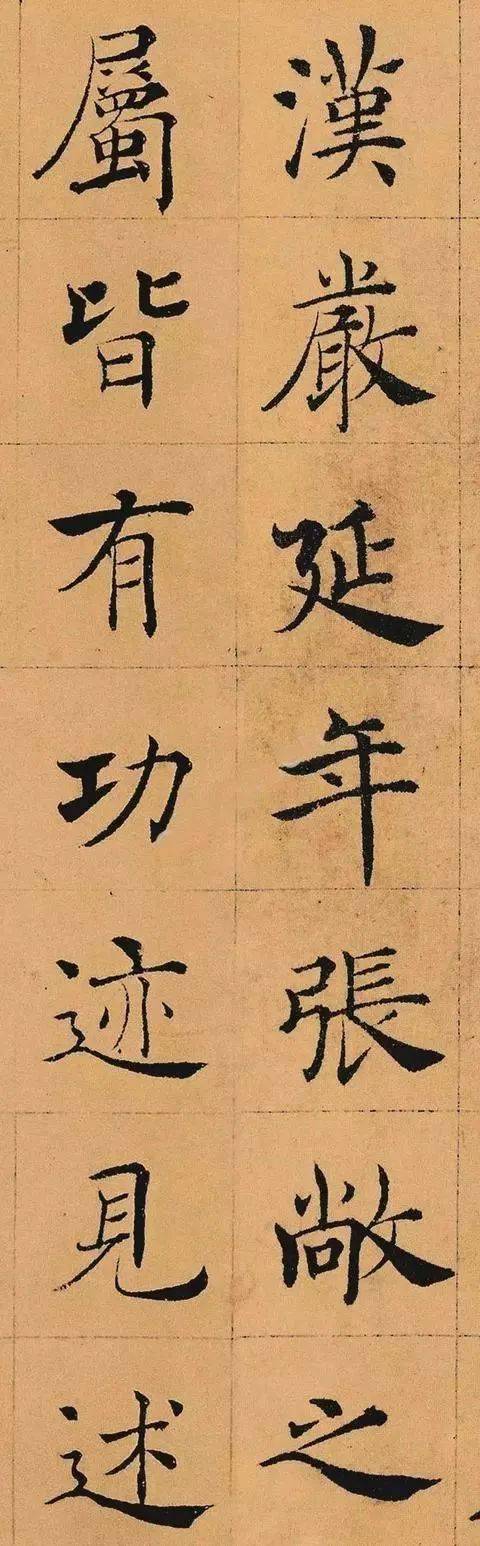 漢嚴延年張敞之
屬皆有功迹見述